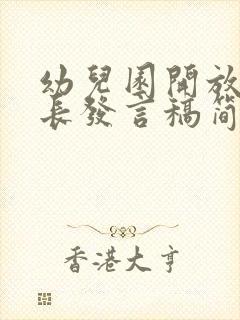 幼兒園開放
長發言稿簡
香港大亨